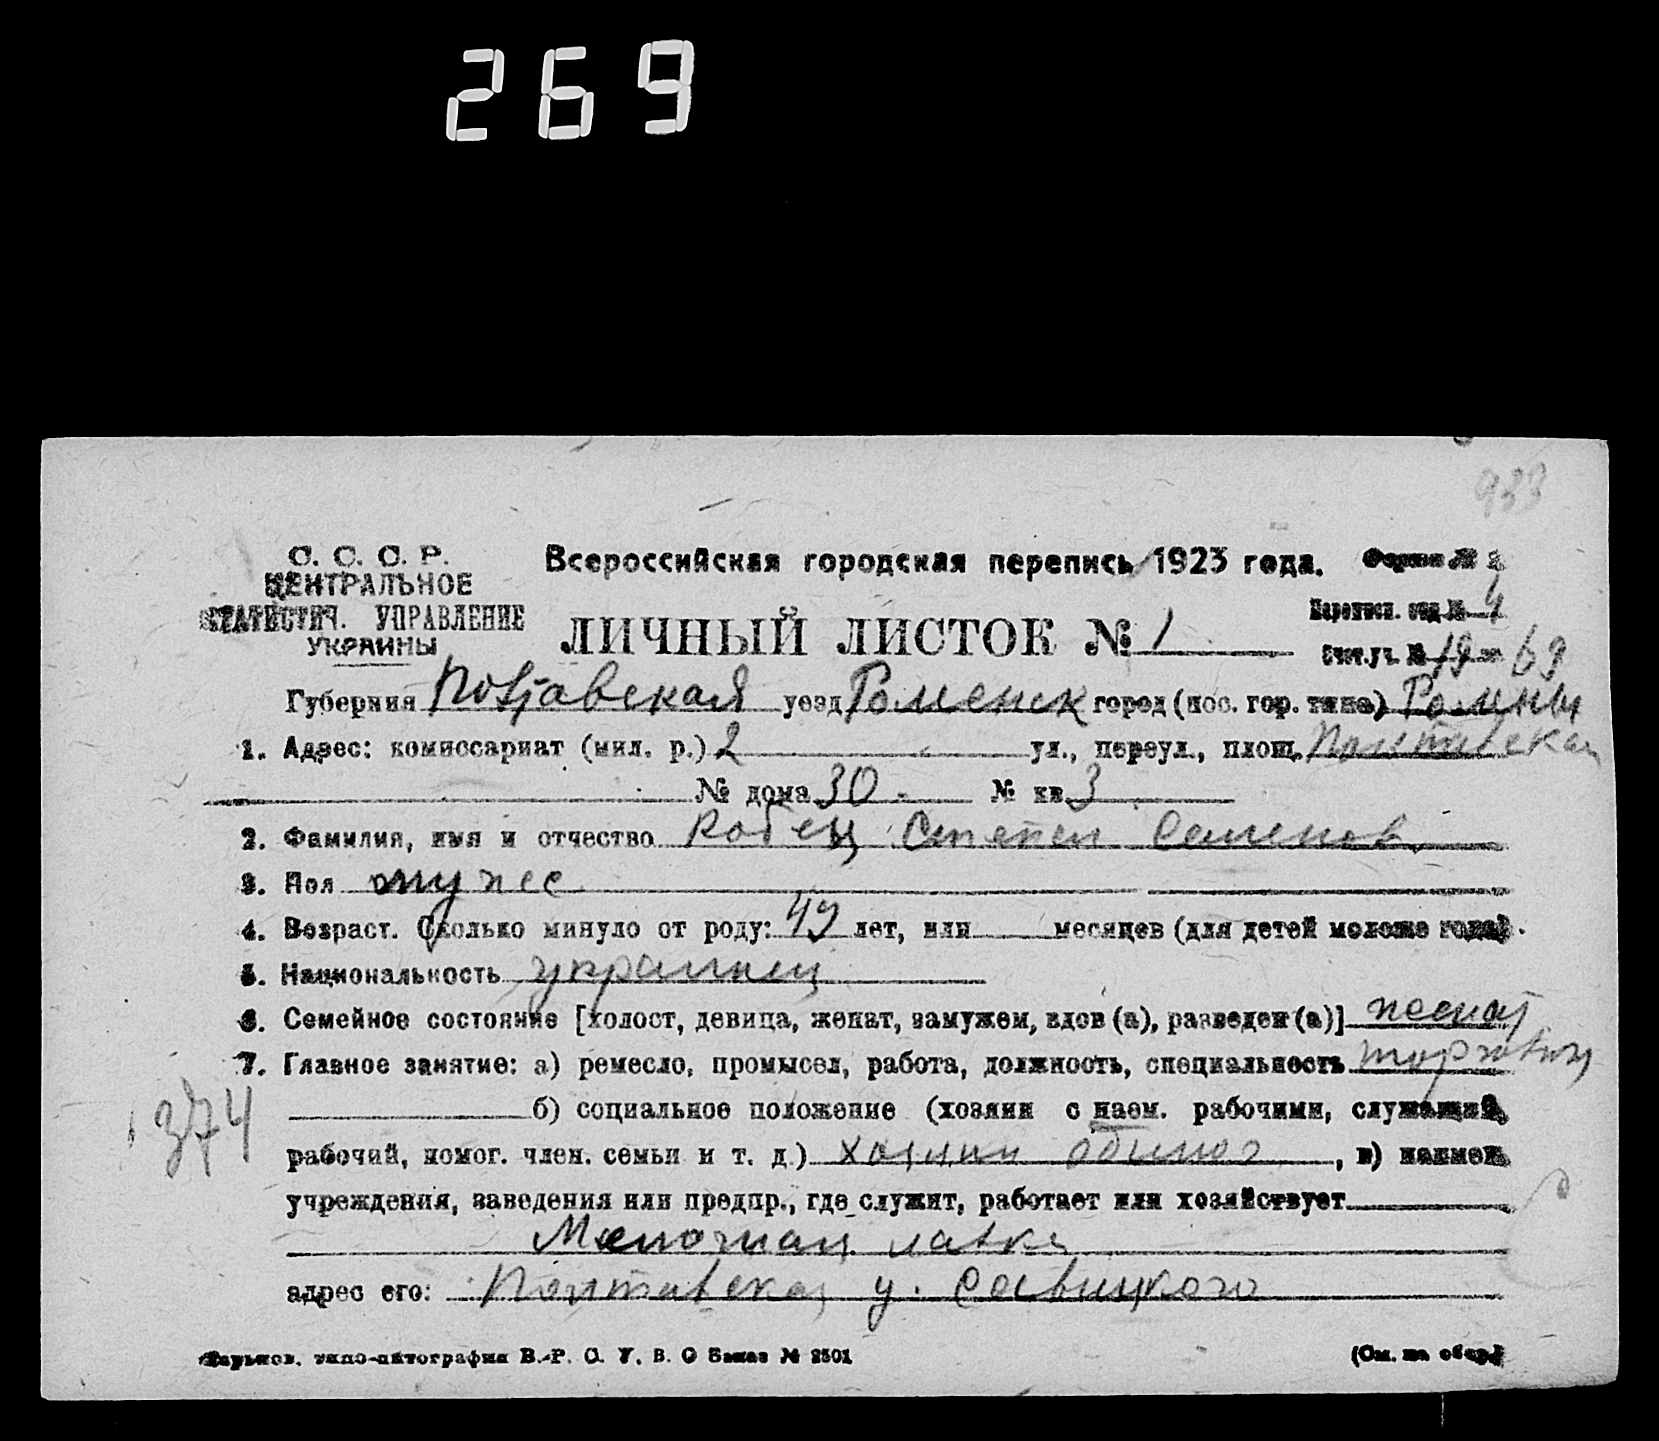 269
933
С. С. С. Р.
ЦЕНТРАЛЬНОЕ
СТАТИСТИЧ. УПРАВЛЕНИЕ
УКРАИНЫ
Всероссийская городская перепись 1923 года.
Форма № 2
ЛИЧНЫЙ ЛИСТОК № 1
Переписн. отд. № 4
Счет. уч. № 19 69
Губерния Полтавская уезд Роменск город (пос. гор. типа) Ромны
1. Адрес: комиссариат (мил. р.) 2 ул., переул., площ. Полтавская
№ дома 30 № кв. 3
2. Фамилия, имя и отчество Кобец Степан Семенов
3. Пол мужес
4. Возраст. Сколько минуло от роду: 49 лет, или месяцев (для детей моложе года).
5. Национальность украинец
6. Семейное состояние [холост, девица, женат, замужем, вдов (а), разведен (а)] женат
7. Главное занятие: а) ремесло, промысел, работа, должность, специальность торговец
374
б) социальное положение (хозяин с наем. рабочими, служащий,
рабочий, помог. член. семьи и т. д.) хозяин одиноч , в) наимен.
учреждения, заведения или предпр., где служит, работает или хозяйствует
Мелочная лавка
адрес его: Полтавская у. Савицкого
Харьков. типо-литография В.-Р. С. У. В. О Заказ № 2501
(См. на обор.)